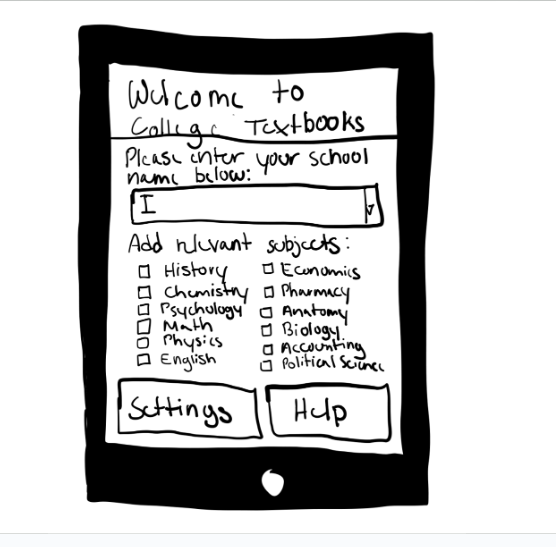 Welcome to
College Textbooks
Please enter your school
name below:
I
Add relevant subjects:
History
Chemistry
Psychology
Math
Physics
English
Economics
Pharmacy
Anatomy
Biology
Accounting
Political Science
Settings
Help